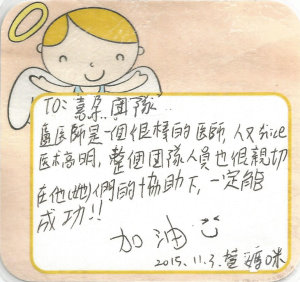 TO:嘉朵團隊
盧醫師是一個很棒的醫師,人又nice
医术高明,整個團隊人員也很親切
在他(她)們的協助下,一定能
成功!!
加油
2015.11.3.萱媽咪